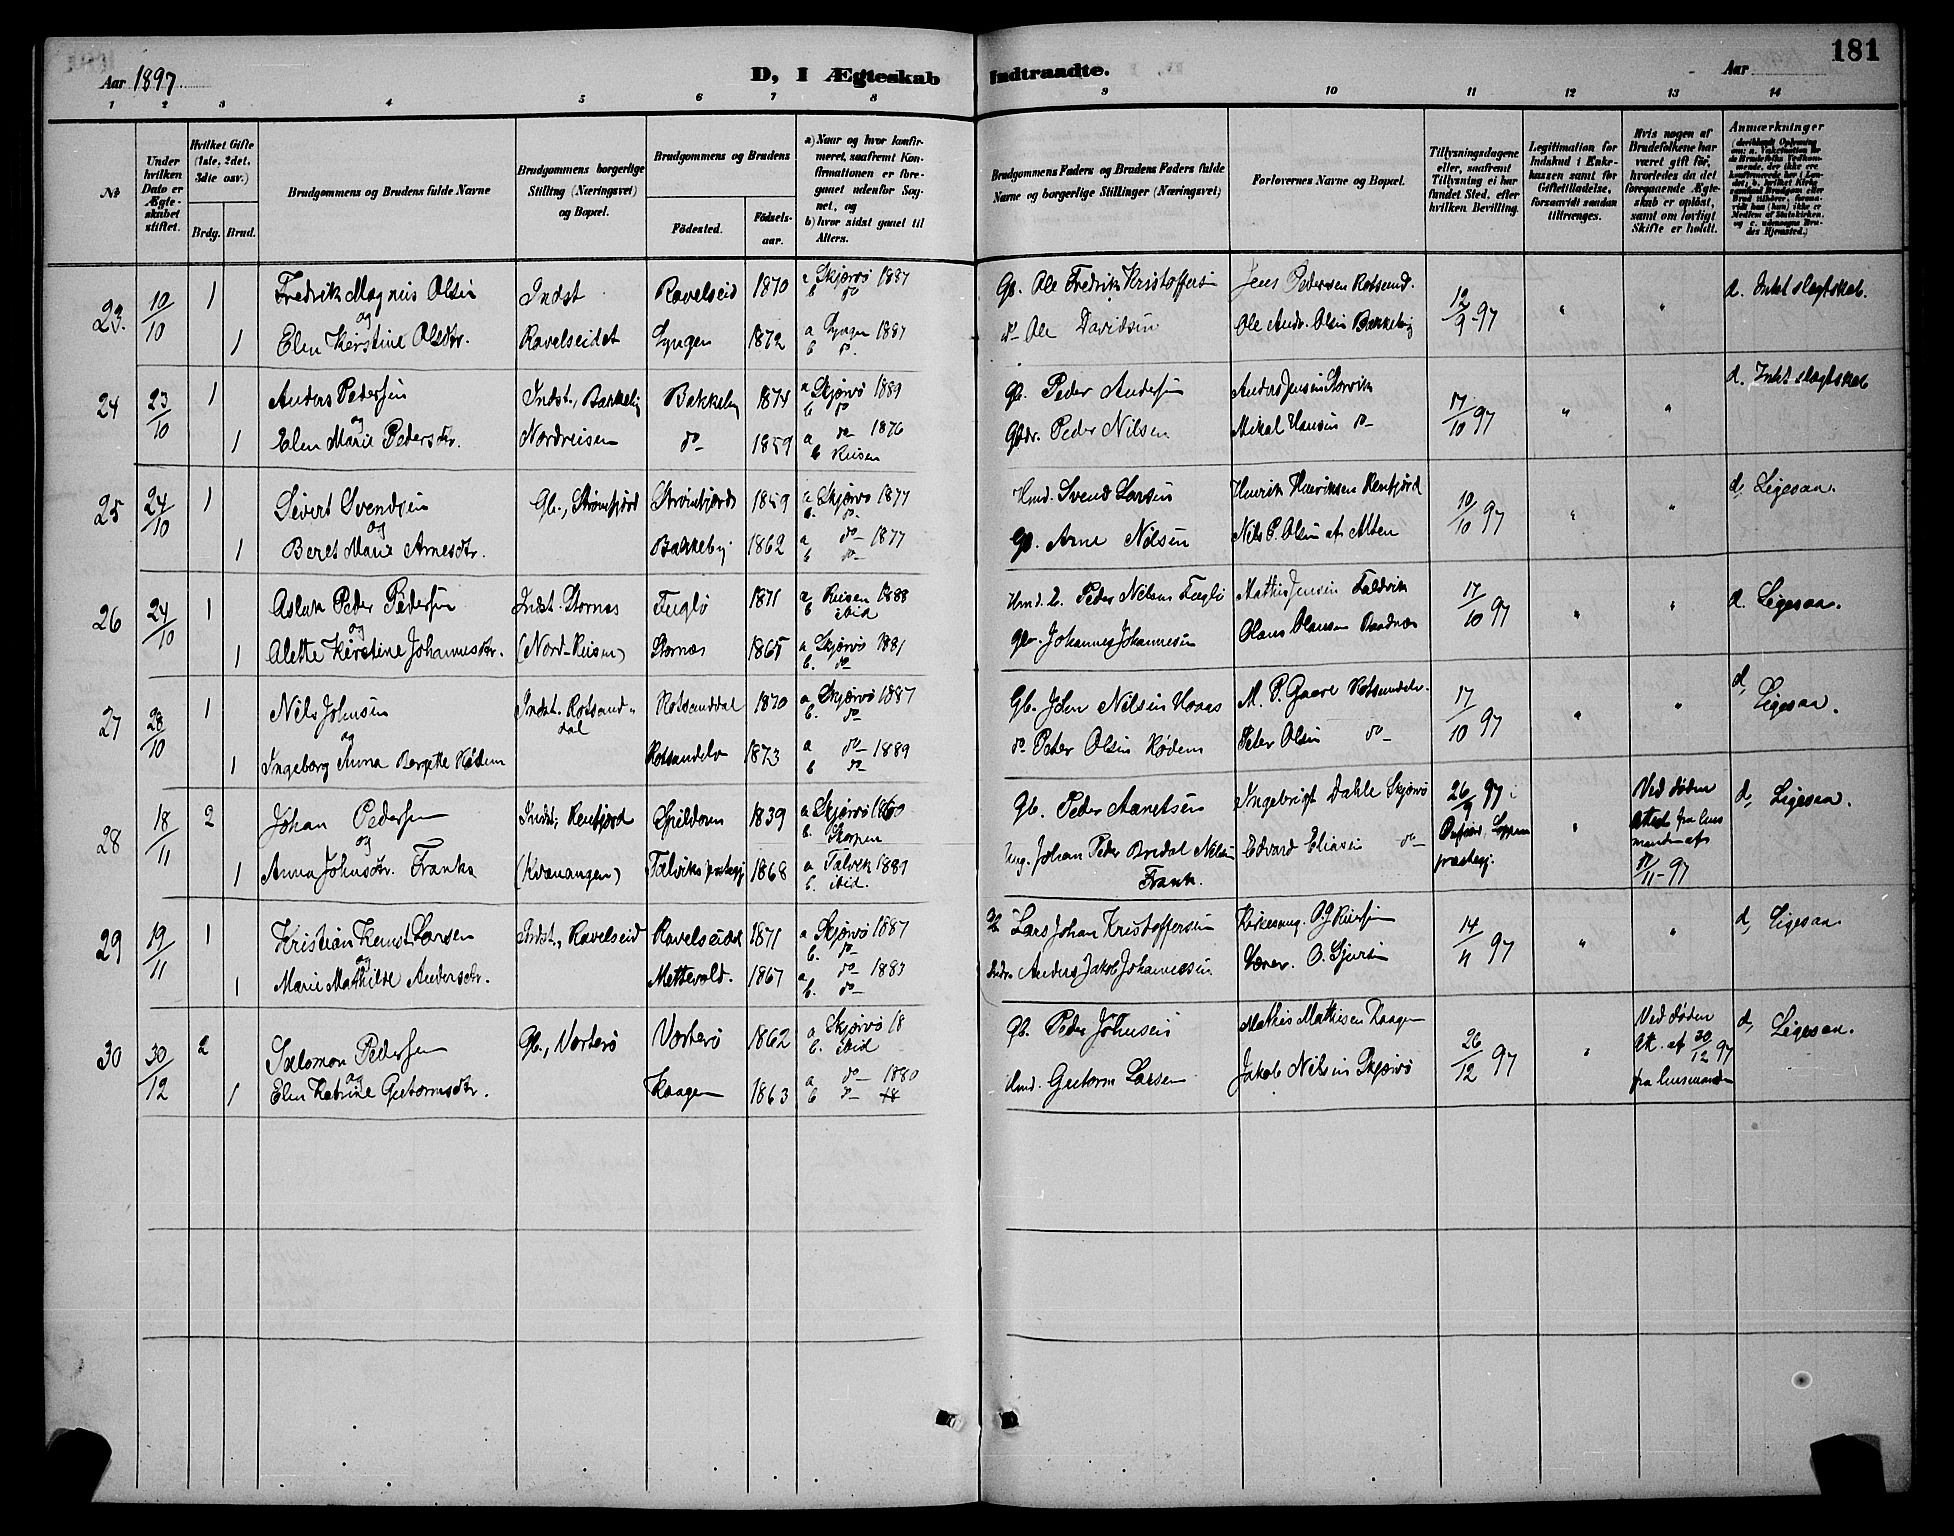 181
Aar 1897
D, I Ægteskab Indtraadte.
Aar
1 2 3 4 5 6 7 8 9 10 11 12 13 14
№
Under hvilken Dato er Ægteskabet stiftet.
Hvilket Gifte (1ste, 2det, 3die osv.)
Brdg. Brud.
Brudgommens og Brudens fulde Navne
Brudgommens borgerlige Stilling (Næringsvei) og Bopæl.
Brudgommens og Brudens
Fødested.
Fødselsaar.
a) Naar og hvor konfirmeret, saafremt Konfirmationen er foregaaet udenfor Sognet, og
b) hvor sidst gaaet til Alters.
Brudgommens Faders og Brudens Faders fulde Navne og borgerlige Stillinger (Næringsvei)
Forlovernes Navne og Bopæl.
Tillysningsdagene eller, saafremt Tillysning ei har fundet Sted, efter hvilken Bevilling.
Legitimation for Indskud i Enkekassen samt for Giftetilladelse, forsaavidt saadan tiltrænges.
Hvis nogen af Brudefolkene har været gift før, hvorledes da det foregaaende Ægteskab er opløst, samt om lovligt Skifte er holdt.
Anmærkninger
23. 10/10 1 Fredrik Magnus Olsen Indst Ravelseid 1870 a Skjærvø 1887 b do Gb. Ole Fredrik Kristoffersen Jens Pedersen Rotsund. 12/9-97 " " d. Intet slagtskab.
og
1 Elen Kirstine Olsdtr. Ravelseidet Lyngen 1872 a Lyngen 1887 b do. do Ole Davidsen Ole Andr. Olsen Bakkeby
24 23/10 1 Anders Pedersen Indst., Bakkeby Bakkeby 1874 a Skjærvø 1889 b do Gb. Peder Andersen Anders Jensen Storvik 17/10 97 " " d. Intet slagtskab
og
1 Elen Marie Pedersdtr. Nordreisen do 1859 a do 1876 b Reisen Gbdr. Peder Nilsen Mikal Hansen do
25 24/10 1 Sivert Svendsen Gb., Strømfjord Strømfjord 1859 a Skjærvø 1877 b. do. Hmd. Svend Larsen Henrik Henriksen Renfjord 10/10 97 " " d, Ligesaa.
og
1 Beret Marie Arnesdtr. Bakkeby 1862 a do 1877 b do Gb. Arne Nilsen Nils P. Olsen af Alten
26 24/10 1 Aslak Peder Pedersen Indst. Stornes Fuglø 1871 a Reisen 1888 b ibid Hmd. L. Peder Nilsen Fuglø Mathis Jensen Faldvik 17/10 97 " " d. Ligesaa.
og
1 Alette Kirstine Johannesdtr. (Nord-Reisen) Stornes 1865 a Skjærvø 1881 b. do Gbr. Johannes Johannesen Olaus Olausen
27 28/10 1 Nils Johnsen Indst. Rotsunddal Rotsunddal 1870 a Skjærvø 1887 b. do Gb. John Nilsen Hoaas M. P. Gaare Rotsundelv. 17/10 97 " " d, Ligesaa.
og
1 Ingeborg Anna Bergitte Rødum Rotsundelv 1873 a do 1889 b do do Peter Olsen Rødum Peter Olsen do
28 18/11 2 Johan Pedersen Indst, Renfjord Spildern 1839 a Skjærvø 1860 b. Skorpen Gb. Peder Aanetsen Ingebrigt Dahle Skjærvø 26/9 97 Loppen præstegj. " Ved døden Attest fra lensmanden af 17/11-97 d, Ligesaa.
og
1 Anna Johnsdtr. Franks (Kvænangen) Talviks præstegj 1868 a Talvik 1887 b. ibid. Ung. Johan Peder Bredal Nilsen Frank. Edvard Eliasen do
29 19/11 1 Kristian Kornel Larsen Indst., Ravelseid Ravelseidet 1871 a Skjærvø 1887 b. do Gb Lars Johan Kristoffersen Kirkesang. 14/11 97 " " d, Ligesaa.
og
1 Marie Mathilde Andersdtr. Mettevold. 1867 a do 1883 b. do Indr. Anders Jakob Johannesen Lærer. O. Sjursen
30 30/12 2 Salomon Pedersen Gb., Vorterø Vorterø 1862 a Skjærvø 18 b. ibid Gb. Peder Johnsen Mathis Mathisen Kaagen 26/12 97 " Ved døden Att. af 30/12 97 fra lensmanden d, Ligesaa.
og
1 Elen Katrine Guttormsdtr. Kaagen 1863 a do 1880 b do 18 Hmd. Guttorm Larsen Jakob Nilsen Skjærvø